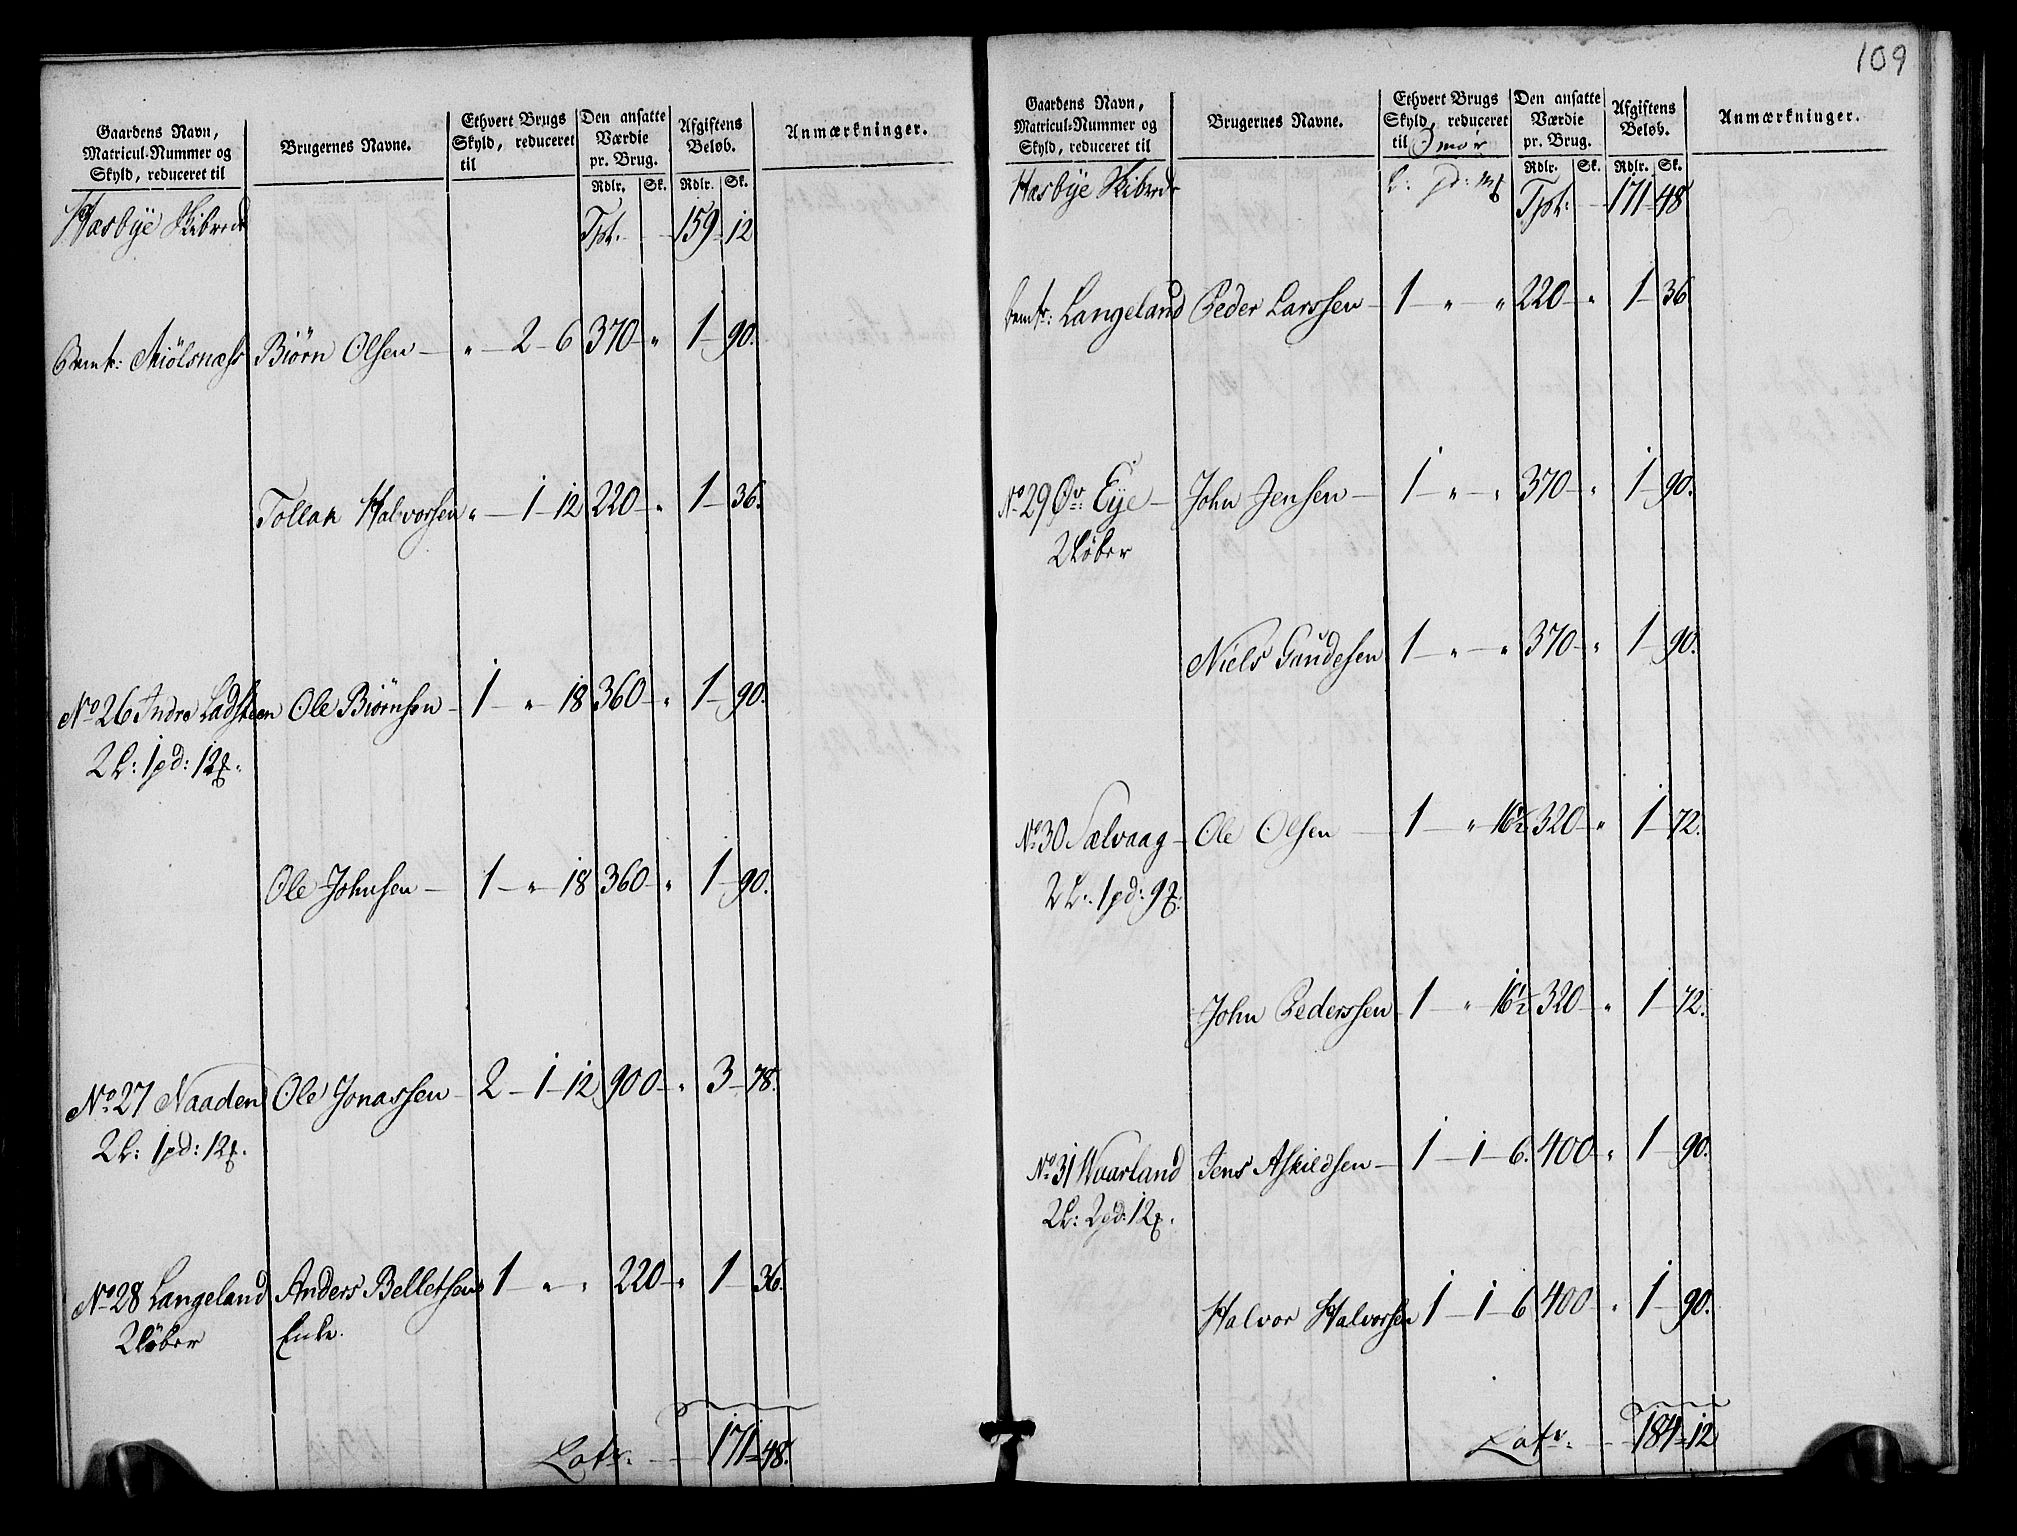 Gaardens Navn,
Matricul-Nummer og
Skyld, reduceret til
Brugernes Navne.
Ethvert Brugs
Skyld, reduceret
til
Den ansatte
Værdie
pr. Brug.
Rdlr. Sk.
Afgiftens
Beløb.
Rdlr. Sk.
Anmærkninger.
Hasbye Skibrede Tpt. 159 12
Miölsnæss Biörn Olsen " 2 6 370 " 1 90.
Tollak Halvorsen " 1 12 220 " 1 36.
No 26 Indre Ladsteen Ole Biörnsen 1 " 18 360 " 1 90.
2 L: 1 pd: 12
Ole Johnsen 1 " 18 360 " 1 90.
No 27 Naaden Ole Jonassen 2 1 12 900 " 3 78.
2 L: 1 pd: 12
No 28 Langeland Anders Belletsens 1 " " 220 " 1 36.
2 Löber Enke.
Latr. 171 48.
109
Gaardens Navn,
Matricul-Nummer og
Skyld, reduceret til
Brugernes Navne.
Ethvert Brugs
Skyld, reduceret
til Smør
L: pd: m
Den ansatte
Værdie
pr. Brug.
Rdlr. Sk.
Afgiftens
Beløb.
Rdlr. Sk.
Anmærkninger.
Hasbye Skibrede Tpt. 171 48
Langeland Peder Larssen 1 " " 220 " 1 36
No 29 Öv: Eye John Jensen 1 " " 370 " 1 90.
2 Löber
Niels Gaudesen 1 " " 370 " 1 90.
No 30 Sælvaag Ole Olsen 1 " 16½ 320 " 1 72.
2 L: 1 pd: 9
John Pederssen 1 " 16½ 320 " 1 72.
No 31 Waarland Jens Askildsen 1 1 6. 400 " 1 90.
2 L: 2 pd: 12
Halvor Halvorsen 1 1 6 400 " 1 90.
Latr. 184 12